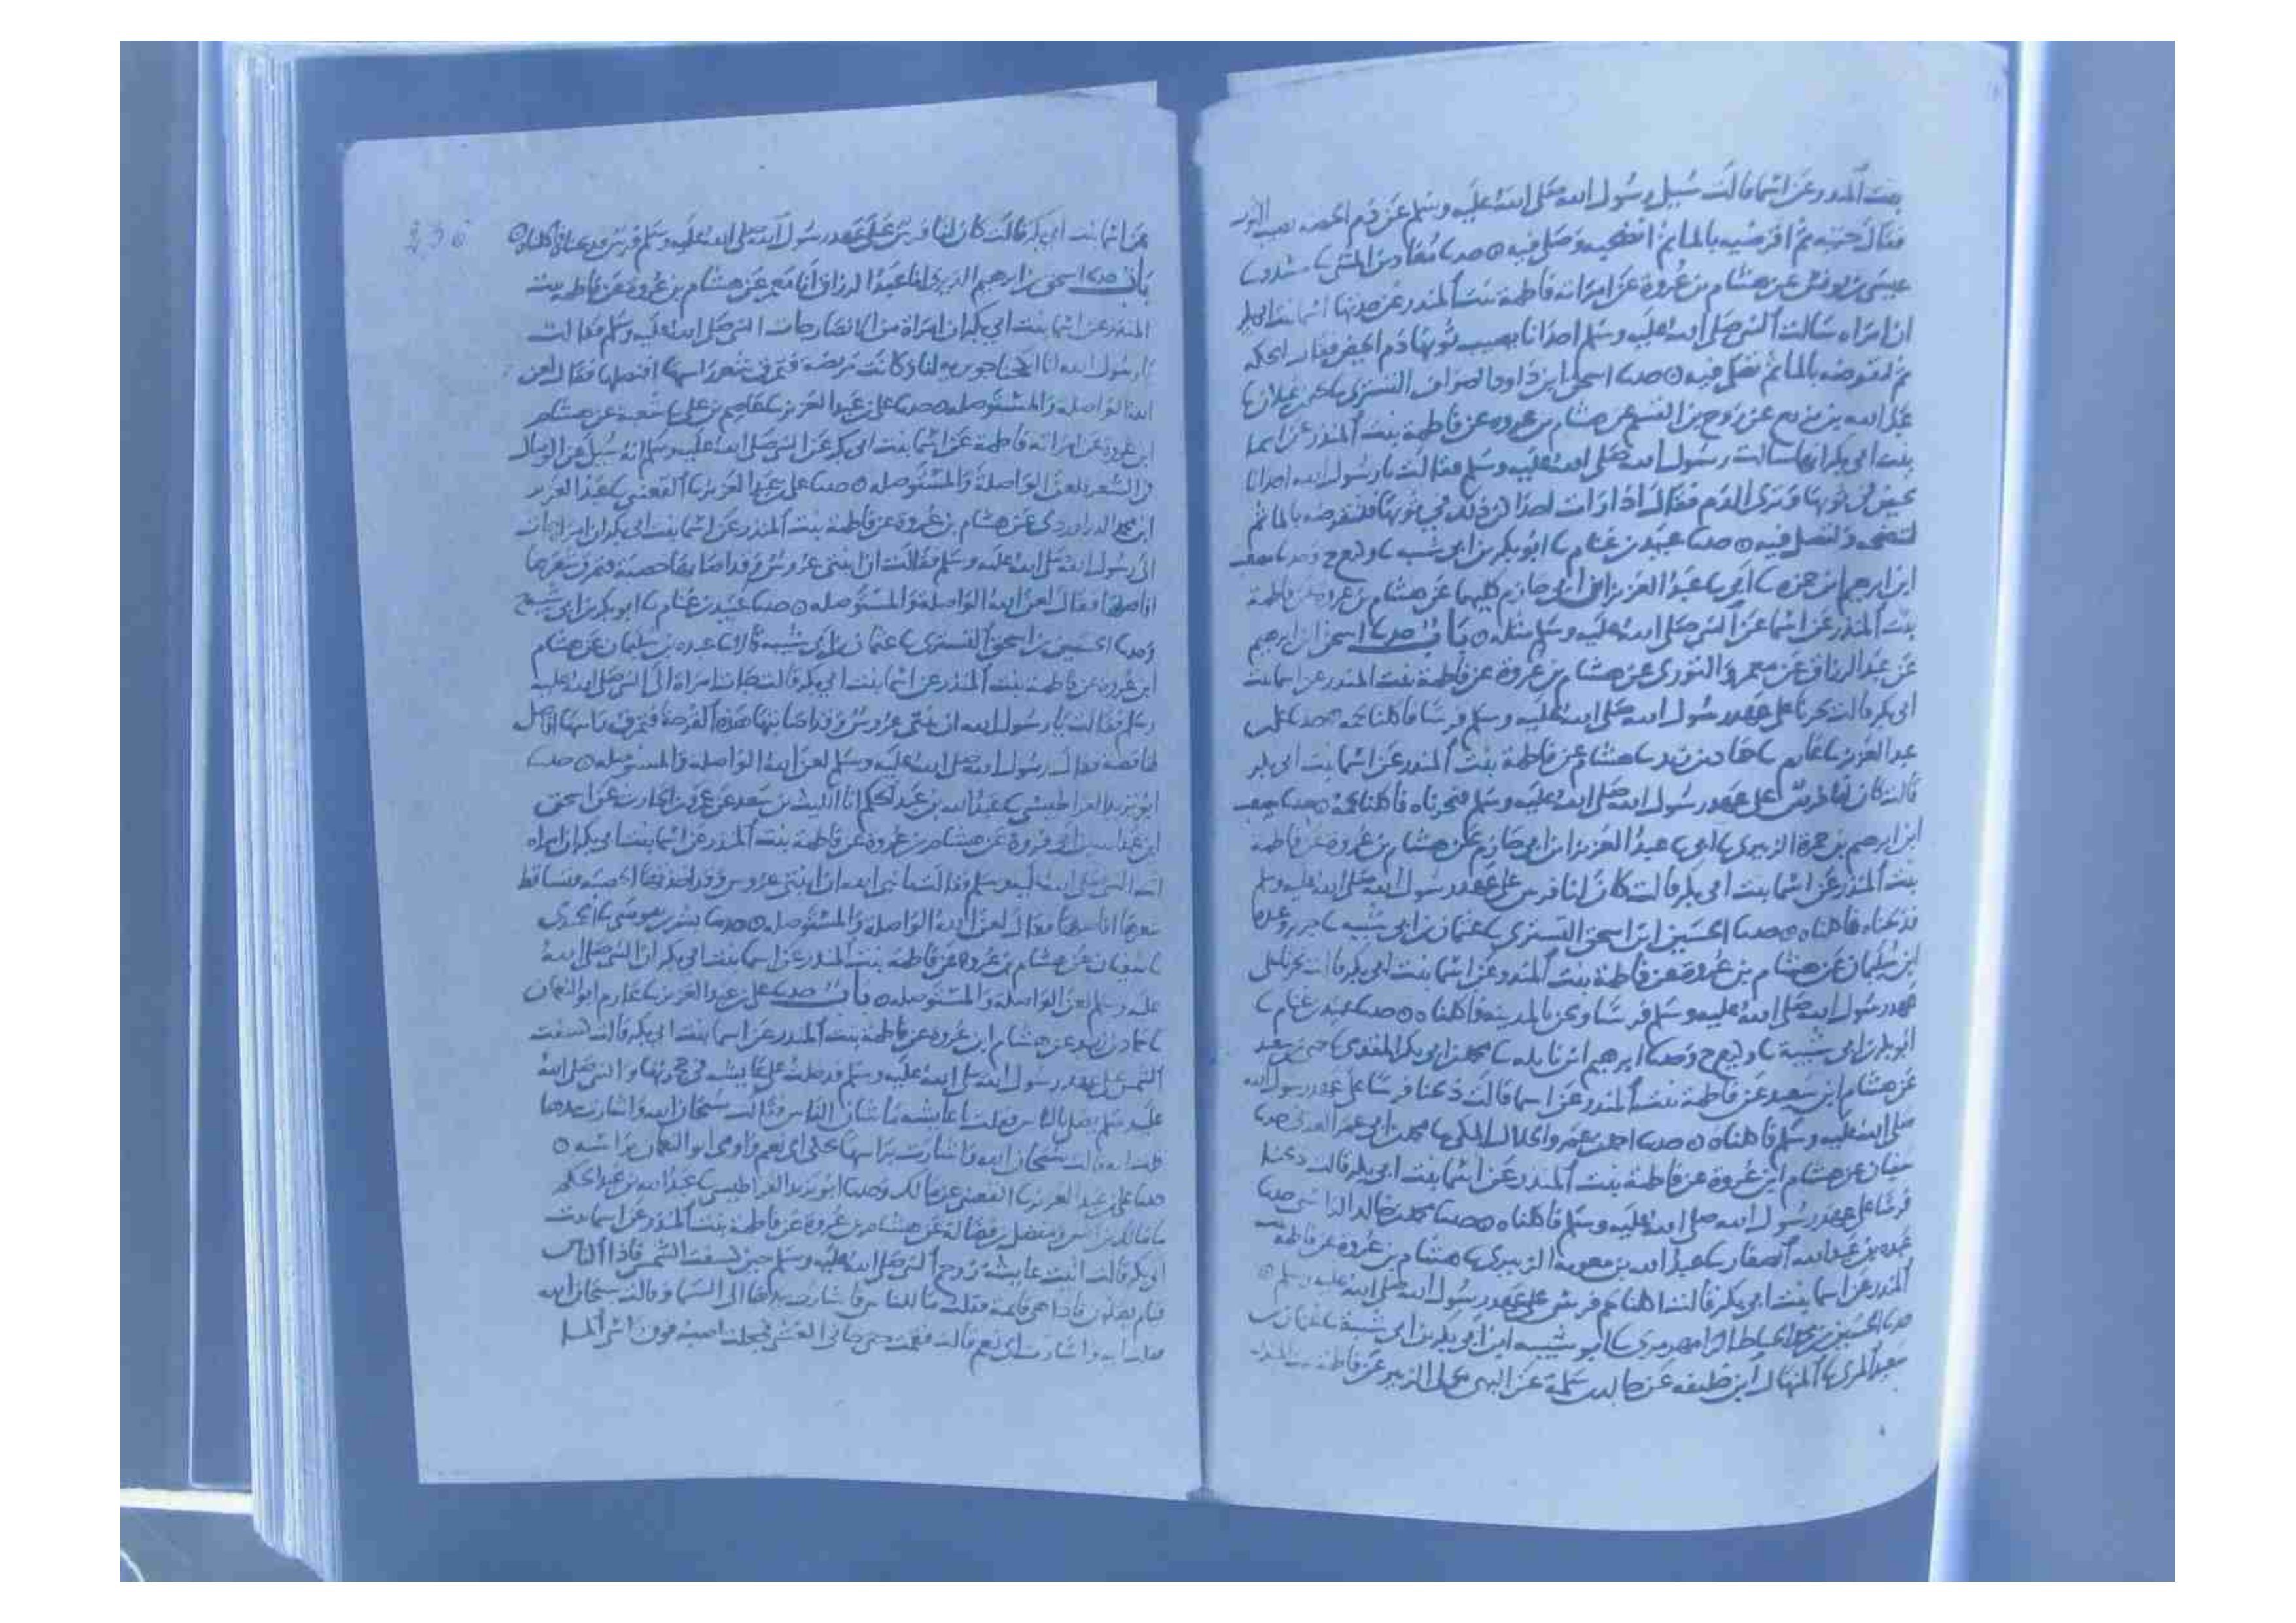 بنت المنذر عن اسما قالت سيل رسول الله صلى الله عليه وسلم عن دم الحيض يصيب الثوب
فقال حتيه ثم اقرضيه بالما ثم انضحيه وصلى فيه ۞ حدثنا معاذ بن المثنى ثنا مسدد ثنا
عيسى بن يونس عن هشام بن عروة عن امراته فاطمة بنت المنذر عن جدتها اسما بنت ابي بكر
ان امراه سالت النبي صلى الله عليه وسلم احدانا يصيب ثوبها دم الحيض فقال لتحكه
ثم لتقرضه بالما ثم تصلى فيه ۞ حدثنا اسحق ابن داود الصواف التستري ثنا يحيى بن غيلان ثنا
عبد الله بن بزيع عن روح بن القسم عن هشام بن عروه عن فاطمة بنت المنذر عن اسما
بنت ابي بكر انها سالت رسول الله صلى الله عليه وسلم فقالت يا رسول الله احدانا
تحيض في ثوبها وترى الدم فقال اذا رات احداكن ذلك في ثوبها فلتقرضه بالما ثم
لتنضحه ولتصل فيه ۞ حدثنا عبيد بن غنام ثنا ابو بكر بن ابي شيبه ثنا وكيع ح وحدثنا مصعب
ابن ابرهيم بن حمزه ثنا ابي ثنا عبد العزيز ابن ابي حازم كليهما عن هشام بن عروه عن فاطمة
بنت المنذر عن اسما عن النبي صلى الله عليه وسلم مثله ۞ باب حدثنا اسحق بن ابرهيم
عن عبد الرزاق عن معمر والثوري عن هشام بن عروة عن فاطمة بنت المنذر عن اسما بنت
ابي بكر قالت نحرنا على عهد رسول الله صلى الله عليه وسلم فرسا فاكلنا لحمه حدثنا علي بن
عبد العزيز ثنا عارم ثنا حماد بن زيد ثنا هشام عن فاطمة بنت المنذر عن اسما بنت ابي بكر
قالت كان لنا فرس على عهد رسول الله صلى الله عليه وسلم فنحرناه فاكلنا لحمه حدثنا مصعب
ابن ابرهيم بن حمزة الزبيري ثنا ابي ثنا عبد العزيز ابن ابي حازم عن هشام بن عروة عن فاطمة
بنت المنذر عن اسما بنت ابي بكر قالت كان لنا فرس على عهد رسول الله صلى الله عليه وسلم
فذبحناه فاكلناه ۞ حدثنا الحسين ابن اسحق التستري ثنا عثمان بن ابي شيبه ثنا جرير وعبدة
ابن سليمان عن هشام بن عروة عن فاطمة بنت المنذر عن اسما بنت ابي بكر قالت نحرنا على
عهد رسول الله صلى الله عليه وسلم فرسا ونحن بالمدينه فاكلناه ۞ حدثنا عبيد بن غنام ثنا
ابو بكر بن ابي شيبة ثنا وكيع ح وحدثنا ابرهيم ابن نايله ثنا محمد بن ابي بكر المقدمي ثنا يحيى بن سعيد
عن هشام ابن سعيد عن فاطمة بنت المنذر عن اسما قالت ذبحنا فرسا على عهد رسول الله
صلى الله عليه وسلم فاكلناه ۞ حدثنا احمد بن عمرو الخلال المكي ثنا محمد بن ابي عمر العدني حدثنا
سفيان عن هشام ابن عروة عن فاطمة بنت المنذر عن اسما بنت ابي بكر قالت ذبحنا
فرسا على عهد رسول الله صلى الله عليه وسلم فاكلناه ۞ حدثنا محمد بن خالد الراسبي حدثنا
عبده بن عبد الله الصفار ثنا عبد الله بن معوية الزبيري ثنا هشام بن عروة عن فاطمة بنت
المنذر عن اسما بنت ابي بكر قالت اكلنا لحم فرس على عهد رسول الله صلى الله عليه وسلم ۞
حدثنا الحسين بن محمد الخياط الرامهرمزي ثنا ابو شيبه ابن ابي بكر بن ابي شيبة ثنا عثمان بن
سعيد المري ثنا المنهال ابن خليفه عن خالد بن سلمة عن البهي مولى الزبير عن فاطمة بنت المنذر
عن اسما بنت ابي بكر قالت كان لنا فرس على عهد رسول الله صلى الله عليه وسلم فرس فذبحناها فاكلناها ۞
236
باب حدثنا اسحق بن ابرهيم الدبري انا عبد الرزاق انا معمر عن هشام بن عروة عن فاطمه بنت
المنذر عن اسما بنت ابي بكر ان امراة من الانصار جات النبي صلى الله عليه وسلم فقالت
يا رسول الله انا انكحنا جويريه لنا وكانت مريضه فتمرق شعر راسها افنصلها فقال لعن
الله الواصله والمستوصله ۞ حدثنا علي بن عبد العزيز ثنا عاصم بن علي ثنا شعبة عن هشام
ابن عروة عن امراته فاطمة عن اسما بنت ابي بكر عن النبي صلى الله عليه وسلم انه سيل عن الوصال
في الشعر فلعن الواصلة والمستوصله ۞ حدثنا علي بن عبد العزيز ثنا القعنبي ثنا عبد العزيز
ابن محمد الدراوردي عن هشام بن عروة عن فاطمة بنت المنذر عن اسما بنت ابي بكر ان امراة اتت
الى رسول الله صلى الله عليه وسلم فقالت ان ابنتي عروس وقد اصابتها حصبة فتمرق شعرها
افاصلها فقال لعن الله الواصلة والمستوصله ۞ حدثنا عبيد بن غنام ثنا ابو بكر بن ابي شيبة ح
وحدثنا الحسين بن اسحق التستري ثنا عثمان بن ابي شيبة قالا ثنا عبده بن سليمان عن هشام
ابن عروة عن فاطمة بنت المنذر عن اسما بنت ابي بكر قالت جات امراة الى النبي صلى الله عليه
وسلم فقالت يا رسول الله ان بنتي عروس وقد اصابتها هذه القرحة فتمرق راسها افاصل
لها قصة فقال رسول الله صلى الله عليه وسلم لعن الله الواصله والمستوصله ۞ حدثنا
ابو يزيد القراطيسي ثنا عبد الله بن عبد الحكم انا الليث بن سعد عن عمرو بن الحارث عن اسحق
ابن عبد الله بن ابي فروة عن هشام بن عروة عن فاطمة بنت المنذر عن اسما بنت ابي بكر ان امراه
اتت النبي صلى الله عليه وسلم فقالت يا نبي الله ان ابنتي عروس وقد اخذتها الحصبه فتساقط
شعرها افاصلها فقال لعن الله الواصلة والمستوصله ۞ حدثنا بشر بن موسى ثنا الحميدي
ثنا سفيان عن هشام بن عروة عن فاطمة بنت المنذر عن اسما بنت ابي بكر ان النبي صلى الله
عليه وسلم لعن الواصلة والمستوصله ۞ باب حدثنا علي بن عبد العزيز ثنا عارم ابو النعمان
ثنا حماد بن زيد عن هشام ابن عروة عن فاطمة بنت المنذر عن اسما بنت ابي بكر قالت كسفت
الشمس على عهد رسول الله صلى الله عليه وسلم فدخلت على عايشه في حجرتها والنبي صلى الله
عليه وسلم يصلي بالناس فقلت يا عايشه ما شان الناس فقالت سبحان الله واشارت بيدها
فقلت ايه قالت سبحان الله فاشارت براسها تحكى اي نعم واومى ابو النعمان براسه ۞
حدثنا علي بن عبد العزيز ثنا القعنبي عن مالك وحدثنا ابو يزيد القراطيسي ثنا عبد الله بن عبد الحكم
ثنا مالك بن انس ومفضل بن فضالة عن هشام بن عروة عن فاطمة بنت المنذر عن اسما بنت
ابي بكر قالت اتيت عايشة زوج النبي صلى الله عليه وسلم حين كسفت الشمس فاذا الناس
قيام يصلون فاذا هي قايمة فقلت ما للناس فاشارت بيدها الى السما وقالت سبحان الله
فقلت ايه فاشارت اي نعم قالت فقمت حتى علاني الغشي فجعلت اصب فوق راسي الما